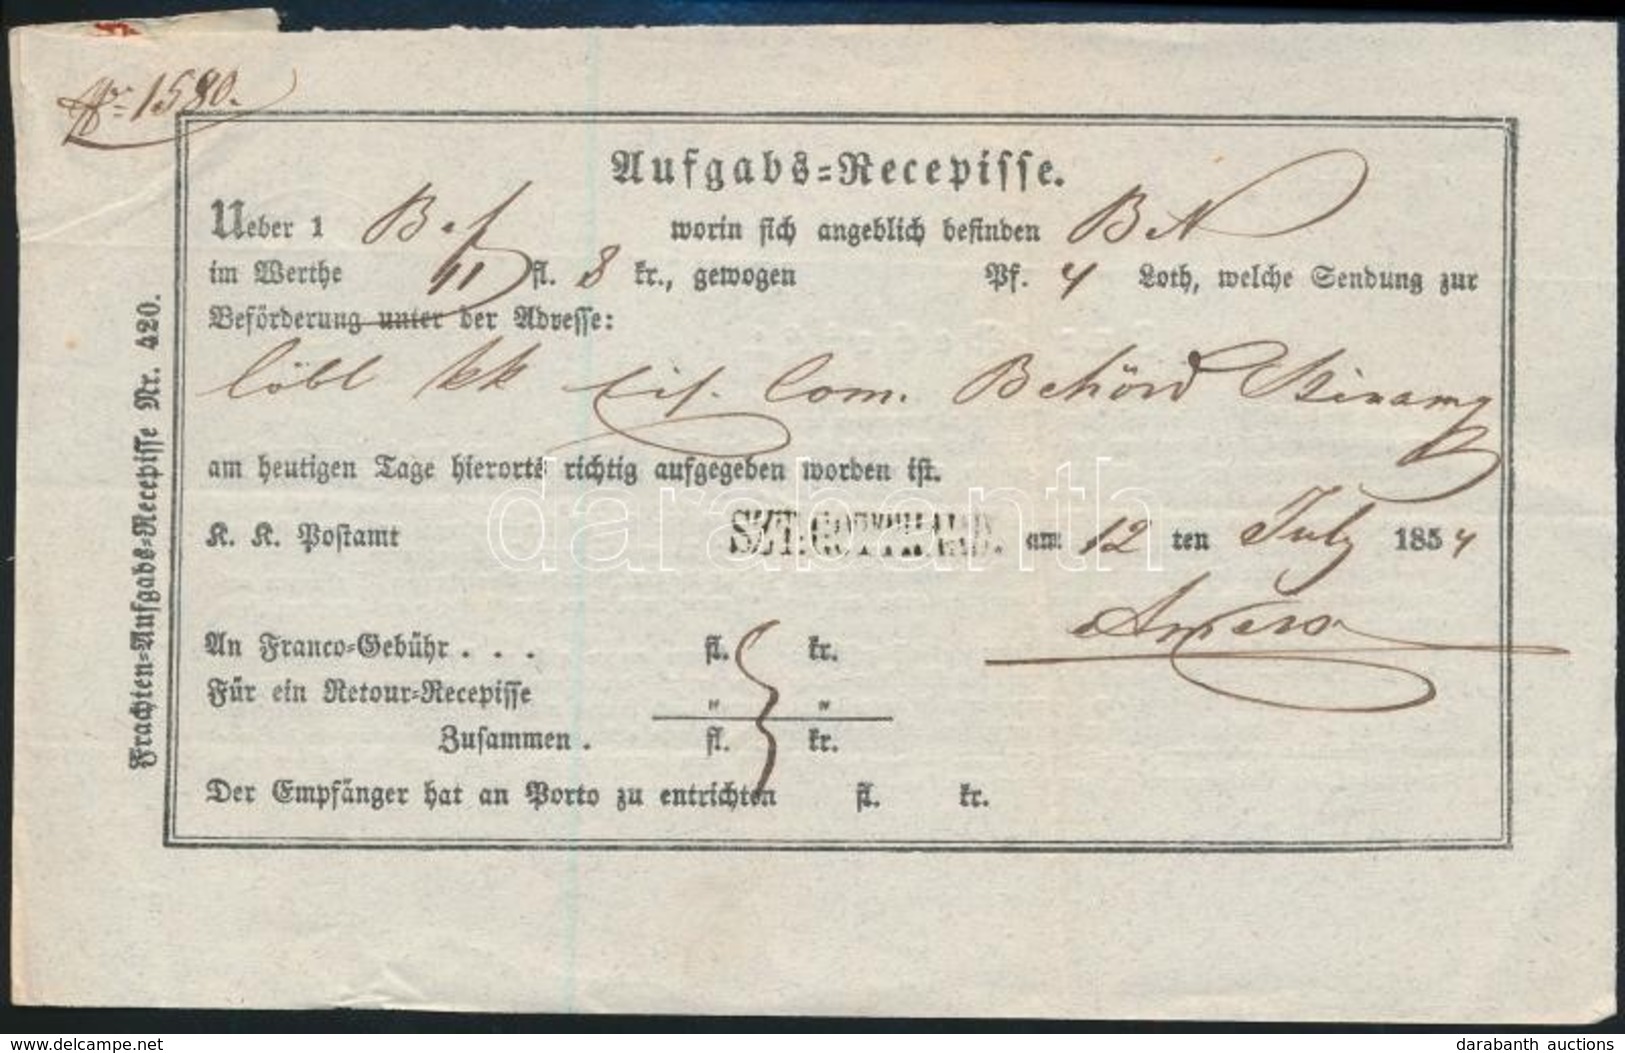 Nr 1580.
Aufgabs=Recepisse.
Ueber 1 worin sich angeblich befinden BN
im Werthe 11 fl. 8 kr., gewogen Pf. 4 Loth, welche Sendung zur
Beförderung unter der Adresse:
löbl kk Com. Behörd
am heutigen Tage hierorts richtig aufgegeben worden ist.
K. K. Postamt SZT. GOTTHARD. am 12 ten July 1854
An Franco=Gebühr . . . fl. kr.
Für ein Retour=Recepisse " "
Zusammen . fl. kr.
Der Empfänger hat an Porto zu entrichten fl. kr.
Frachten=Aufgabs=Recepisse Nr. 420.
darabanth
www.delcampe.net
darabanth auctions